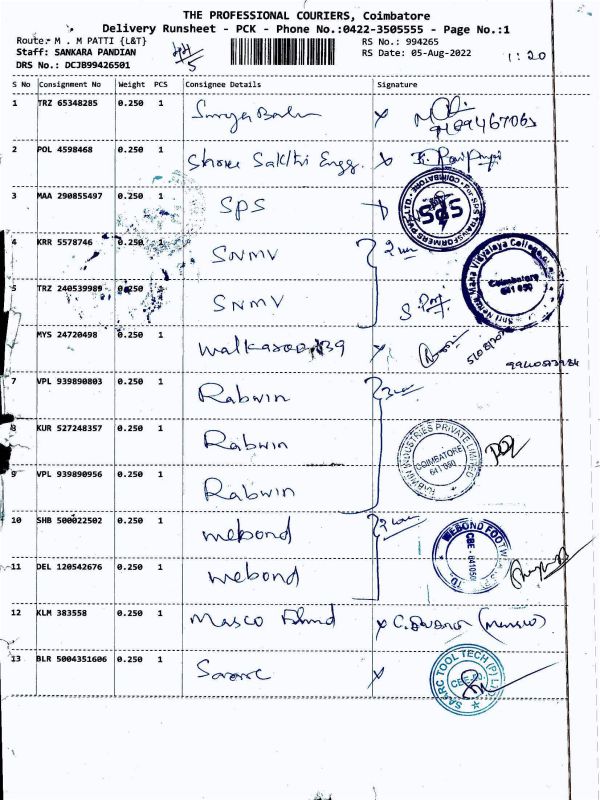 THE PROFESSIONAL COURIERS, Coimbatore
Delivery Runsheet - PCK - Phone No.:0422-3505555 - Page No.:1
Route: M . M PATTI {L&T}
RS No.: 994265
Staff: SANKARA PANDIAN
RS Date: 05-Aug-2022
1:20
DRS No.: DCJB99426501
S No Consignment No Weight PCS Consignee Details Signature
1 TRZ 65348285 0.250 1
2 POL 4598468 0.250 1 Shree Sakthi Engg.
3 MAA 290855497 0.250 1 SPS
SPS TRANSFORMERS COIMBATORE SPS
4 KRR 5578746 0.250 1 SNMV
Coimbatore
641 050
5 TRZ 240539989 0.250 1 SNMV
MYS 24720498 0.250 1
7 VPL 939890803 0.250 1 Rabwin
8 KUR 527248357 0.250 1 Rabwin
RABWIN INDUSTRIES PRIVATE LIMITED
COIMBATORE
641 050
9 VPL 939890956 0.250 1 Rabwin
10 SHB 500022502 0.250 1 Webond
WEBOND FOOTW
CBE - 641050
11 DEL 120542676 0.250 1 Webond
12 KLM 383558 0.250 1 Masco
13 BLR 5004351606 0.250 1
SAARC TOOL TECH (P) LTD